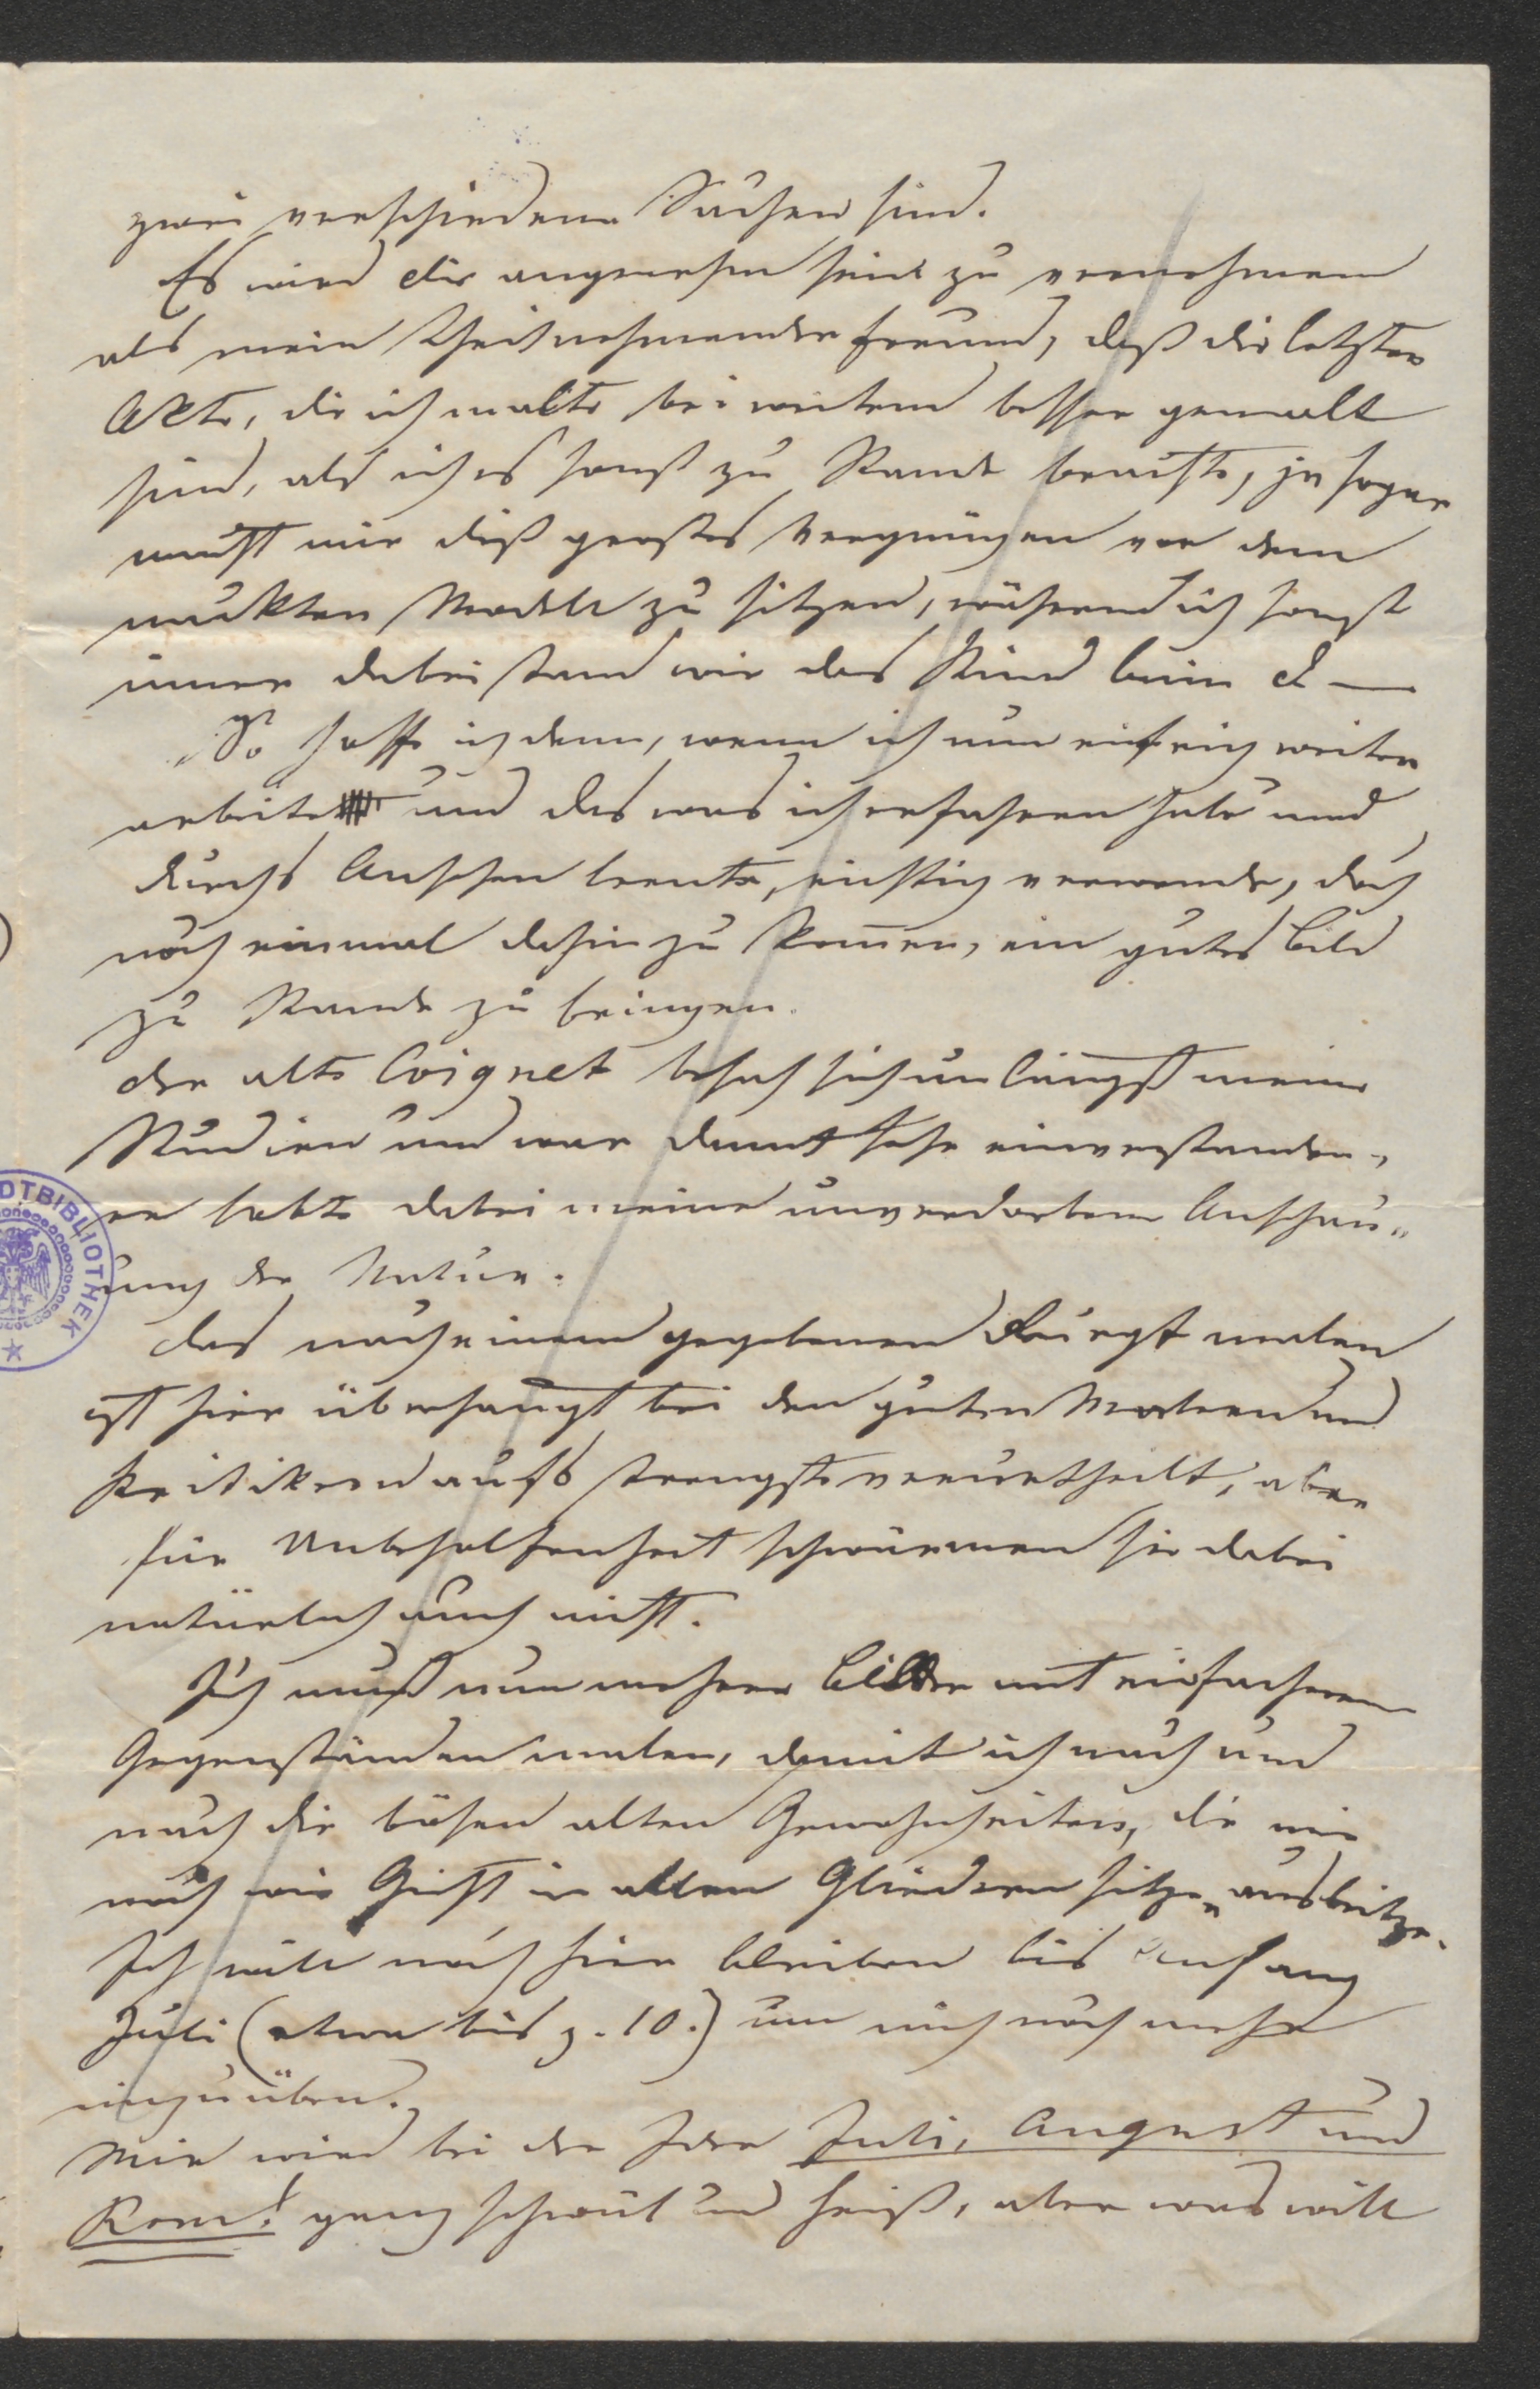 zwei verschiedene Sachen sind.
Es wird dir angenehm sein zu vernehmen
als mein theilnehmender Freund, daß die letzten
Akte, die ich malte bei weitem besser gemalt
sind, als ich es sonst zu Stande brachte, ja sogar
macht mir dieß großes Vergnügen vor dem
nackten Modell zu sitzen, während ich sonst
immer dabei stand wie das Kind beim d —
So hoffe ich denn, wenn ich nun eifrig weiter
arbeite und das was ich erfahren habe und
durchs Ansehen lernte, richtig verwende, doch
noch einmal dahin zu kom̄en, ein gutes Bild
zu Stande zu bringen.
der alte Coignet besah sich unlängst meine
Studien und war damit sehr einverstanden,
er lobte dabei meine unverdorbene Anschau„
ung der Natur.
das nach einem gegebenen Rezept malen
ist hier überhaupt bei den guten Malern und
Kritikern aufs strengste verurtheilt, aber
für Unbeholfenheit schwärmen sie dabei
natürlich auch nicht.
Ich muß nun mehrere Bilder mit einfacheren
Gegenständen malen, damit ich nach und
nach die bösen alten Gewohnheiten, die mir
noch wie Gift in allen Gliedern sitzen ausbeitze.
Ich will noch hier bleiben bis Anfang
Juli (etwa bis z. 10.) um mich noch mehr
einzuüben.
Mir wird bei der Idee Juli, August und
Rom! ganz schwül und heiß, aber was will
DTBIBLIOTHEK